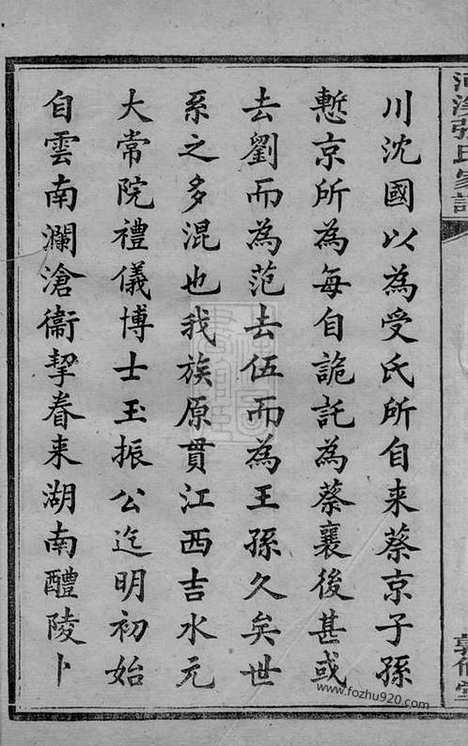 川沈國以為受氏所自来蔡京子孫
慙京所為每自詭託為蔡襄後甚或
去劉而為范去伍而為王孫久矣世
系之多混也我族原貫江西吉水元
大常院禮儀博士玉振公迄明初始
自雲南瀾滄衞挈眷来湖南醴陵卜
張氏家譜
www.fozhu920.com